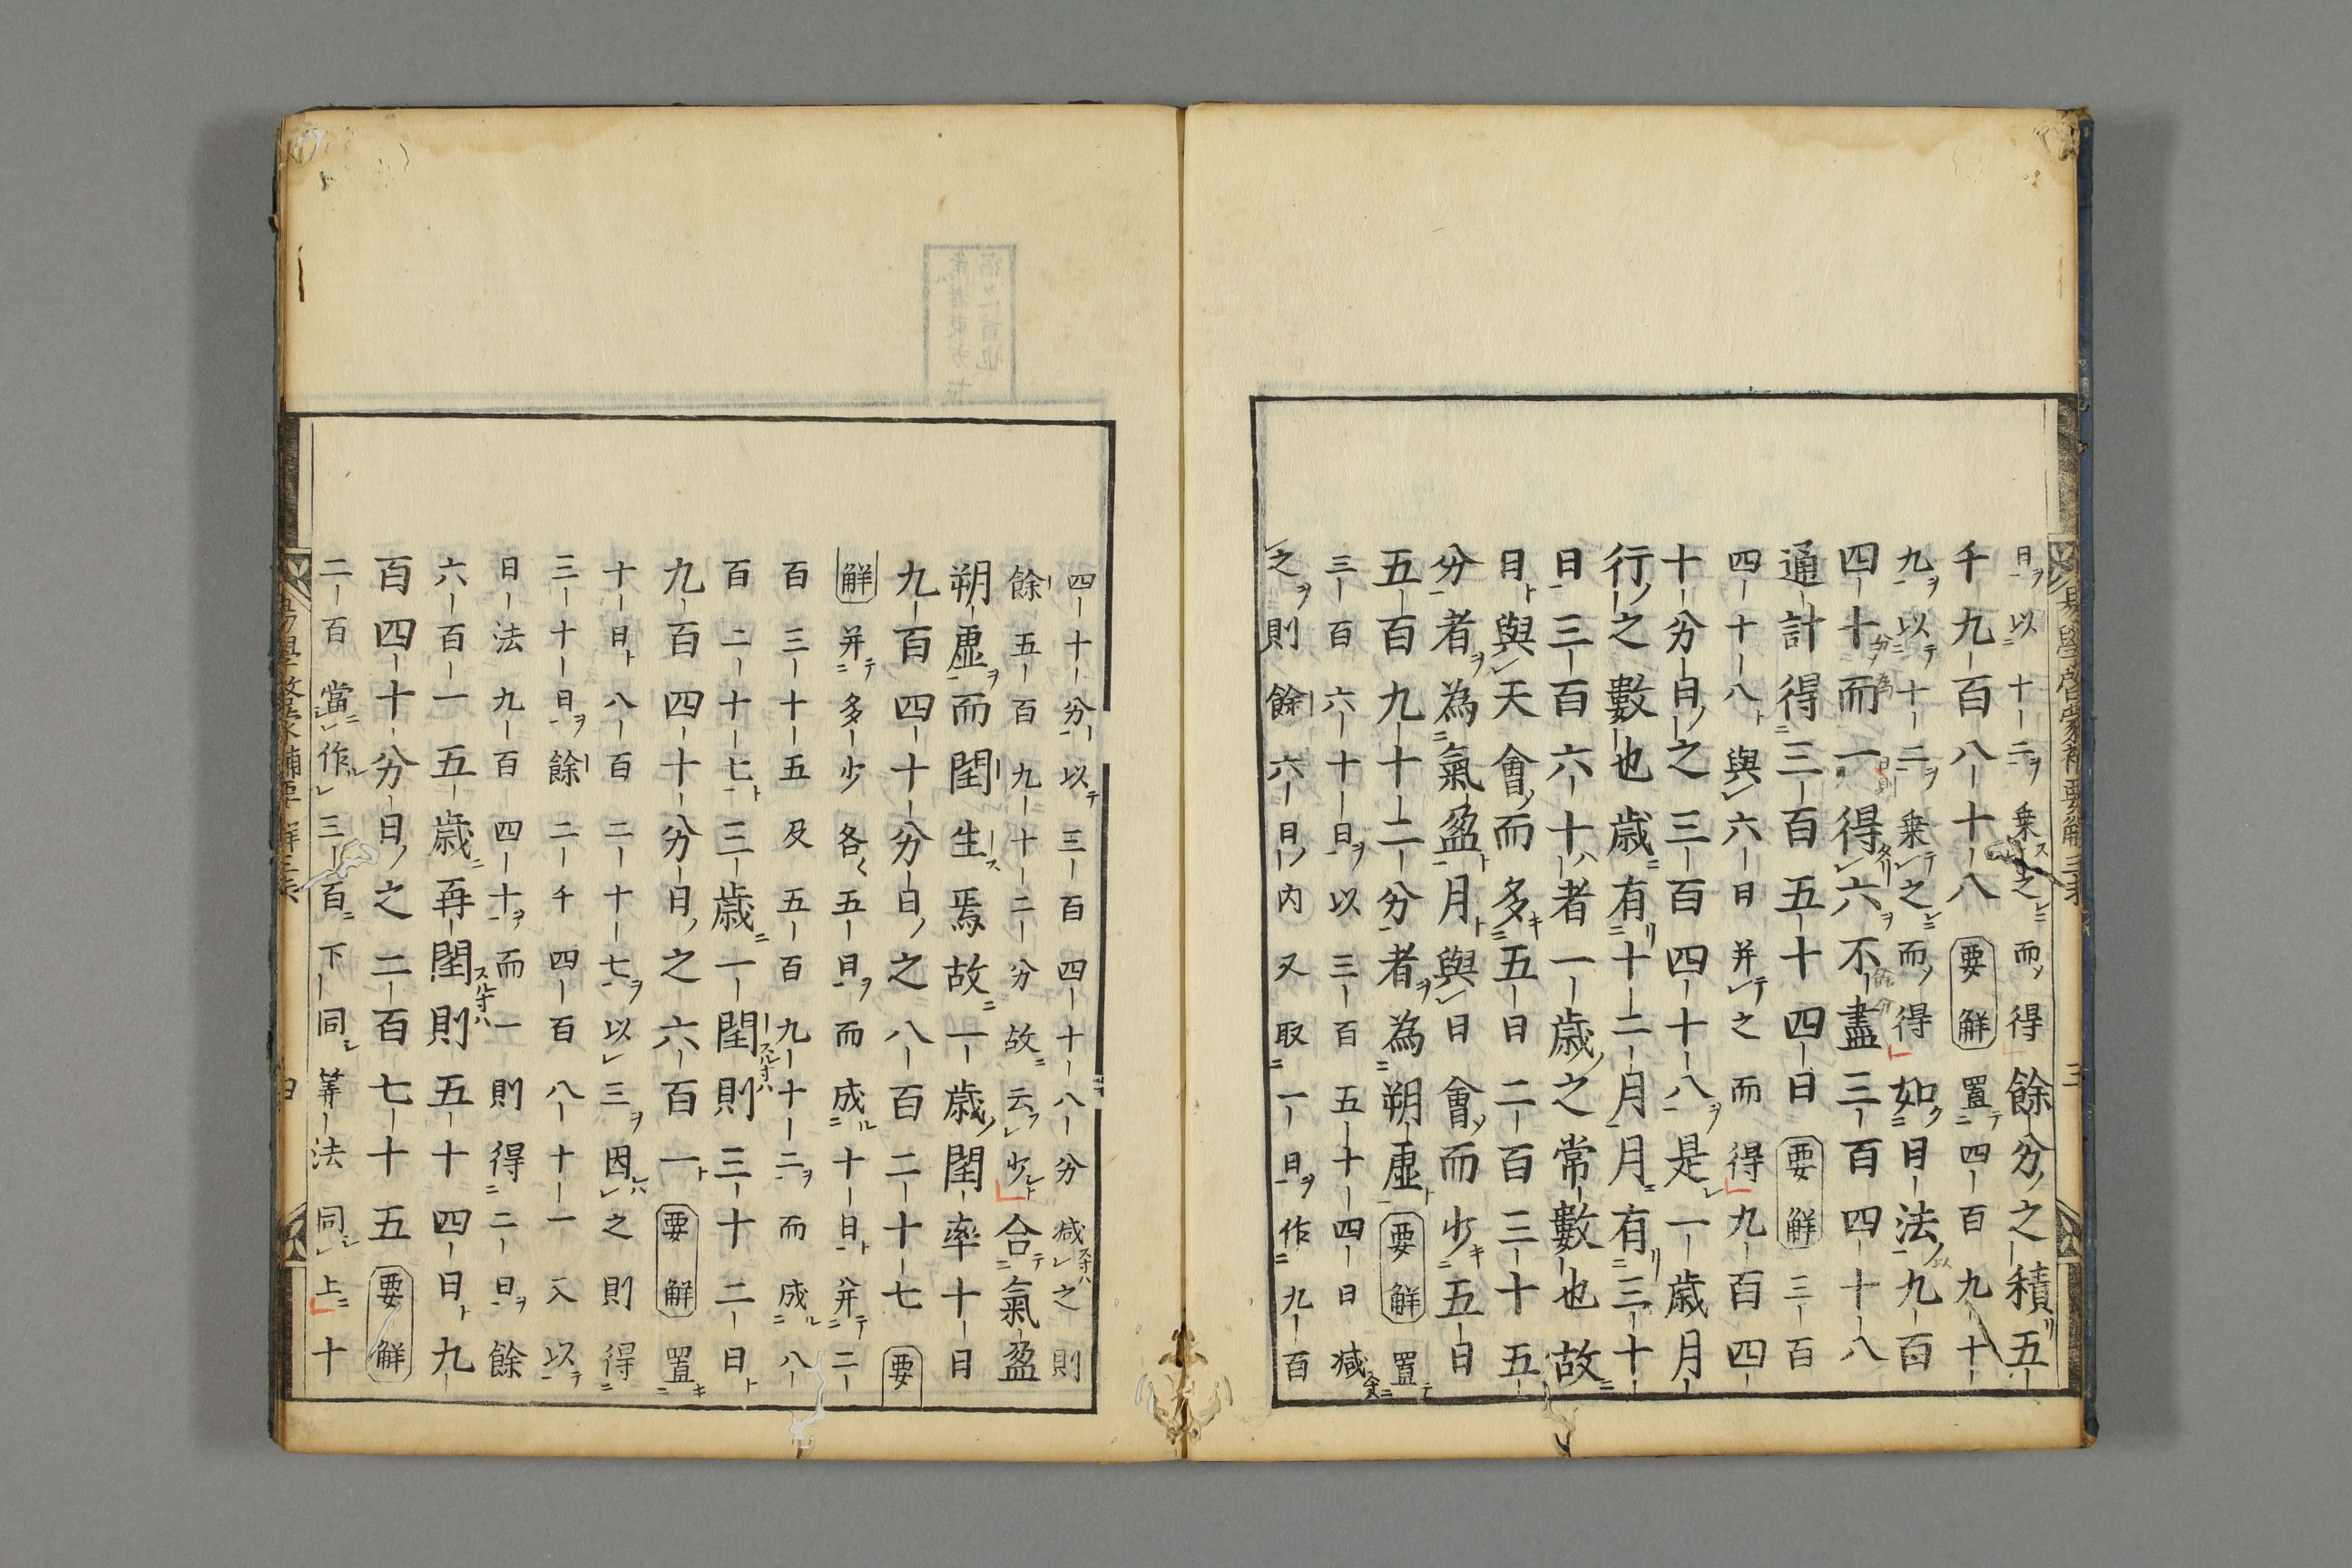 日以十二乗之而得餘分之積五
千九百八十八要解置四百九十
九以十二乗之而得如日法九百
四十而一得六不盡三百四十八
通計得三百五十四日要解三百
四十八與六日并之而得九百四
十分日之三百四十八是一歳月
行之數也歳有十二月月有三十
日三百六十者一歳之常數也故
日與天會而多五日二百三十五
分者為氣盈月與日會而少五日
五百九十二分者為朔虛要解置
三百六十日以三百五十四日減
之則餘六日内又取一日作九百
四十分以三百四十八分減之則
餘五百九十二分故云少合氣盈
朔虛而閏生焉故一歳閏率十日
九百四十分日之八百二十七要
解并多少各五日而成十日并二
百三十五及五百九十二而成八
百二十七三歳一閏則三十二日
九百四十分日之六百一要解置
十日八百二十七以三因之則得
三十日餘二千四百八十一又以
日法九百四十而一則得二日餘
六百一五歳再閏則五十四日九
百四十分日之三百七十五要解
二百當作三百下同筭法同上十